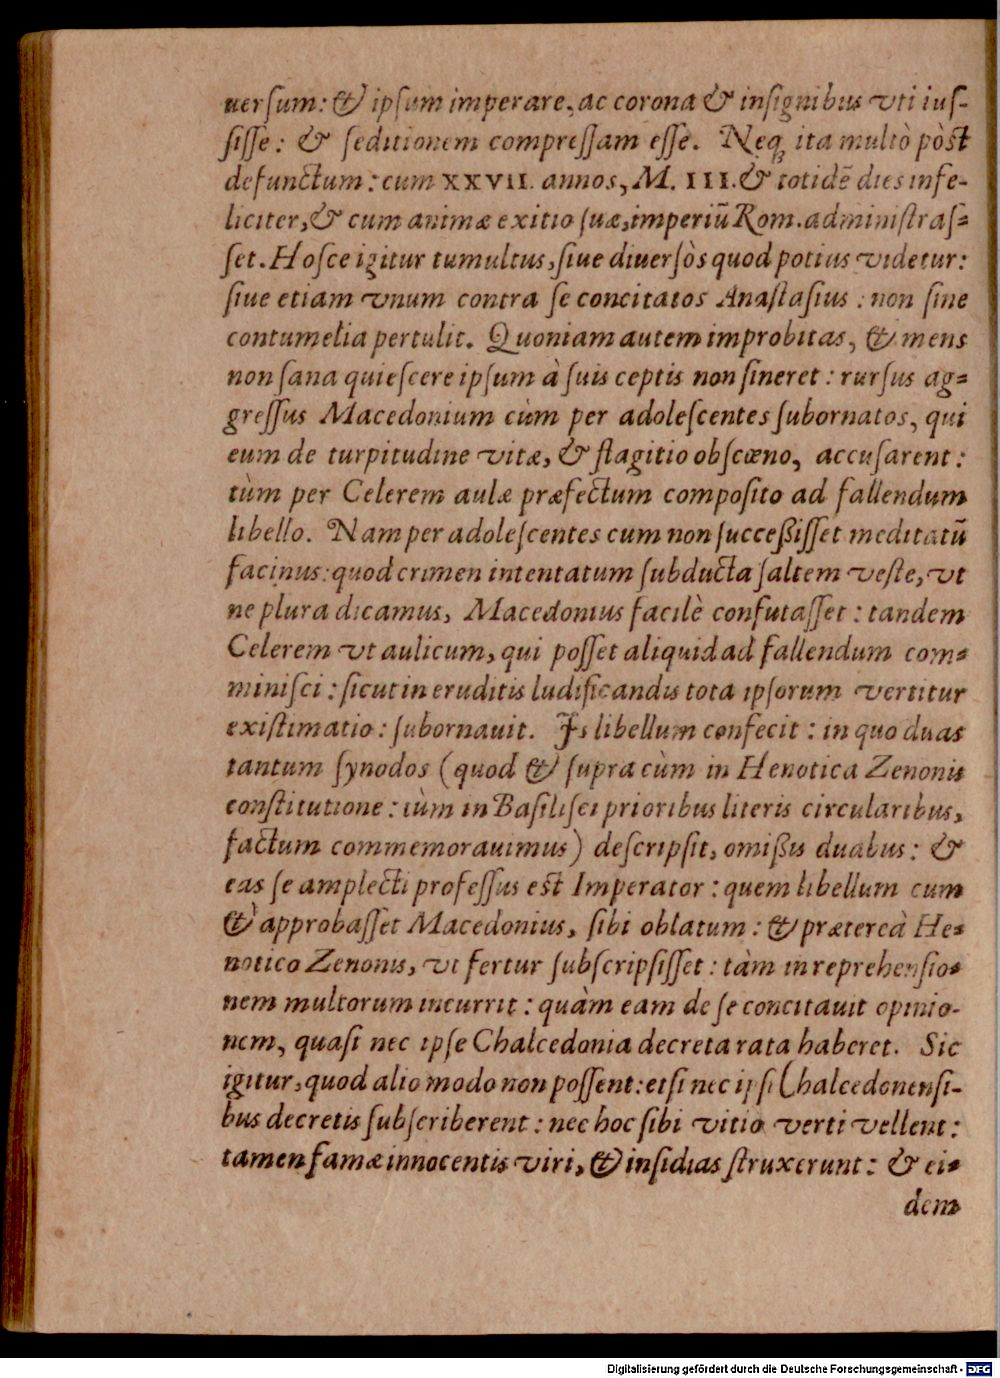 uerſum: & ipſum imperare, ac corona & inſignibus vti iuſ-
ſiſſe: & ſeditionem compreſſam eſſe. Neq; ita multò pòſt
defunctum: cum XXVII. annos, M. III. & totidē dies infe-
liciter, & cum animæ exitio ſuæ, imperiū Rom. adminiſtraſ=
ſet. Hoſce igitur tumultus, ſiue diuerſòs quod potius videtur:
ſiue etiam vnum contra ſe concitatos Anaſtaſius: non ſine
contumelia pertulit. Quoniam autem improbitas, & mens
non ſana quieſcere ipſum à ſuis ceptis non ſineret: rurſus ag=
greſſus Macedonium cùm per adoleſcentes ſubornatos, qui
eum de turpitudine vitæ, & flagitio obſcœno, accuſarent:
tùm per Celerem aulæ præfectum compoſito ad fallendum
libello. Nam per adoleſcentes cum non ſucceßiſſet meditatū
facinus: quod crimen intentatum ſubducta ſaltem veſte, vt
ne plura dicamus, Macedonius facilè confutaſſet: tandem
Celerem vt aulicum, qui poſſet aliquid ad fallendum com=
miniſci: ſicut in eruditis ludificandis tota ipſorum vertitur
exiſtimatio: ſubornauit. Is libellum confecit: in quo duas
tantum ſynodos (quod & ſupra cùm in Henotica Zenonis
conſtitutione: tùm in Baſiliſci prioribus literis circularibus,
factum commemorauimus) deſcripſit, omißis duabus: &
eas ſe amplecti profeſſus eſt Imperator: quem libellum cum
& approbaſſet Macedonius, ſibi oblatum: & prætereà He=
notico Zenonis, vt fertur ſubſcripſiſſet: tàm in reprehenſio=
nem multorum incurrit: quàm eam de ſe concitauit opinio-
nem, quaſi nec ipſe Chalcedonia decreta rata haberet. Sic
igitur, quod alio modo non poſſent: etſi nec ipſi Chalcedonenſi-
bus decretis ſubſcriberent: nec hoc ſibi vitio verti vellent:
tamen famæ innocentis viri, & inſidias ſtruxerunt: & ei=
dem
Digitalisierung gefördert durch die Deutsche Forschungsgemeinschaft - DFG